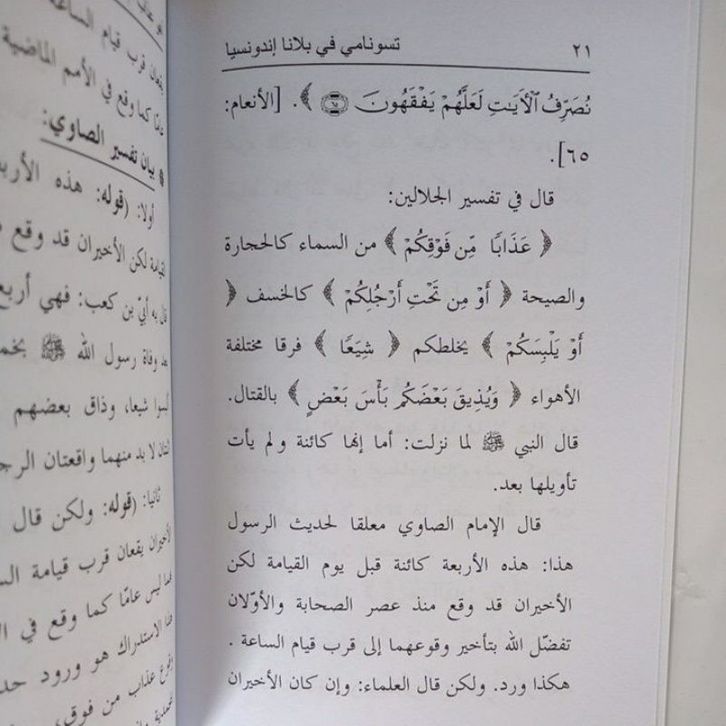 ٢١ تسونامي في بلانا إندونسيا
نُصَرِّفُ ٱلْأَيَـٰتِ لَعَلَّهُمْ يَفْقَهُونَ ۝٦٥ ﴾. [الأنعام:
٦٥].
قال في تفسير الجلالين:
﴿ عَذَابًا مِّن فَوْقِكُمْ ﴾ من السماء كالحجارة
والصيحة ﴿ أَوْ مِن تَحْتِ أَرْجُلِكُمْ ﴾ كالخسف ﴿
أَوْ يَلْبِسَكُمْ ﴾ يخلطكم ﴿ شِيَعًا ﴾ فرقا مختلفة
الأهواء ﴿ وَيُذِيقَ بَعْضَكُم بَأْسَ بَعْضٍ ﴾ بالقتال.
قال النبي ﷺ لما نزلت: أما إنها كائنة ولم يأت
تأويلها بعد.
قال الإمام الصاوي معلقا لحديث الرسول
هذا: هذه الأربعة كائنة قبل يوم القيامة لكن
الأخيران قد وقع منذ عصر الصحابة والأوّلان
تفضّل الله بتأخير وقوعهما إلى قرب قيام الساعة .
هكذا ورد. ولكن قال العلماء: وإن كان الأخيران
يقعان قرب قيام الساعة
عامّا كما وقع في الأمم الماضية
بيان تفسير الصاوي:
أولا: (قوله: هذه الأربعة
القيامة لكن الأخيران قد وقع
قال به أبيّ بن كعب: فهي أربع
بعد وفاة رسول الله ﷺ
شيعا، وذاق بعضهم
لا بد منهما واقعتان
ثانيا: (قوله: ولكن قال
الأخيران يقعان قرب قيامة
ليس عامّا كما وقع في
الاستدراك هو ورود
عذاب من فوق،